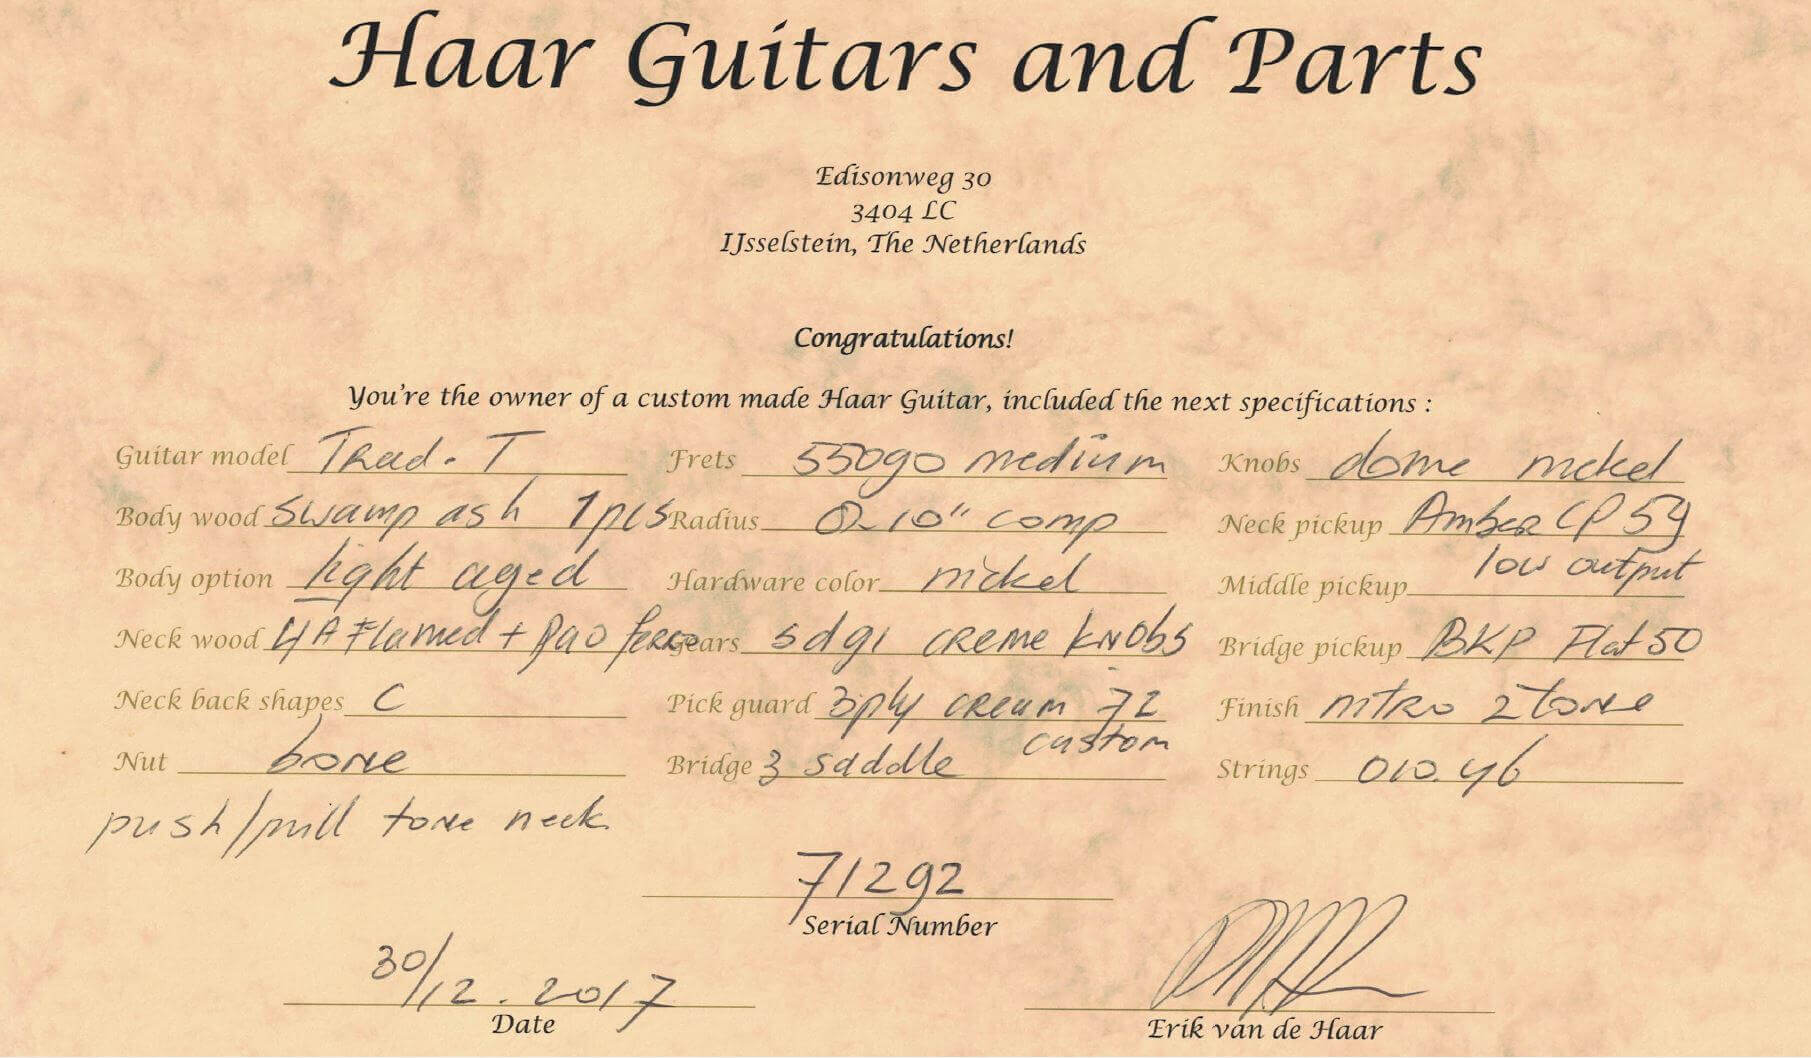 Haar Guitars and Parts
Edisonweg 30
3404 LC
IJsselstein, The Netherlands
Congratulations!
You're the owner of a custom made Haar Guitar, included the next specifications :
Guitar model Trad. T Frets 55090 medium Knobs dome nickel
Body wood swamp ash 1pcs Radius 8-10" comp Neck pickup Amber CP 54
low output
Body option light aged Hardware color nickel Middle pickup
Neck wood 4A Flamed + Pao ferro Gears sdg1 creme knobs Bridge pickup BKP Flat 50
Neck back shapes C Pick guard 3ply cream 72 Finish nitro 2 tone
custom
Nut bone Bridge 3 saddle Strings 010.46
push/pull tone neck
71292
Serial Number
30/12.2017
Date
Erik van de Haar